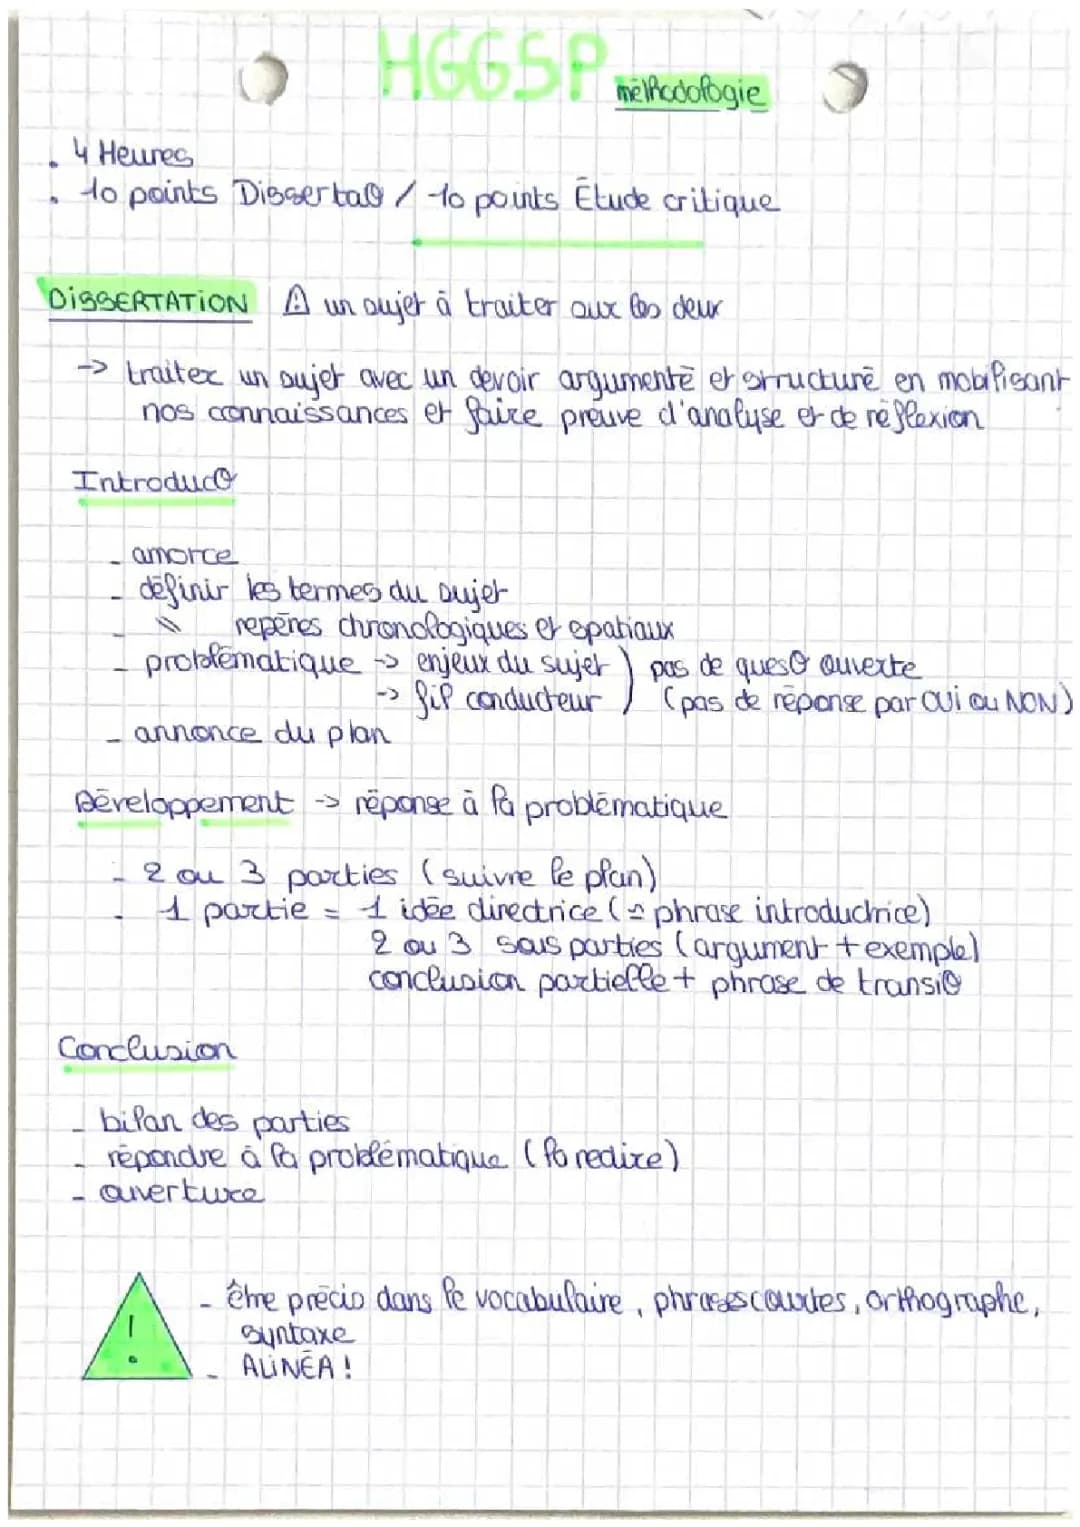 HGGSP méthodologie
. 4 Heures
. 10 points DissertaO / 10 points Étude critique
DISSERTATION ⚠ un sujet à traiter aux les deux
-> traiter un sujet avec un devoir argumenté et structuré en mobilisant
nos connaissances et faire preuve d'analyse et de réflexion
IntroducO
- amorce
- définir les termes du sujet
- \\ repères chronologiques et spatiaux
- problématique -> enjeux du sujet ) pas de quesO ouverte
-> fil conducteur ) (pas de réponse par OUI ou NON)
- annonce du plan
Développement -> réponse à la problématique
- 2 ou 3 parties (suivre le plan)
. 1 partie = 1 idée directrice (= phrase introductrice)
2 ou 3 sous parties (argument + exemple)
conclusion partielle + phrase de transiO
Conclusion
- bilan des parties
- répondre à la problématique (la redire)
- ouverture
! - être précis dans le vocabulaire, phrases courtes, orthographe,
syntaxe
- ALINÉA !